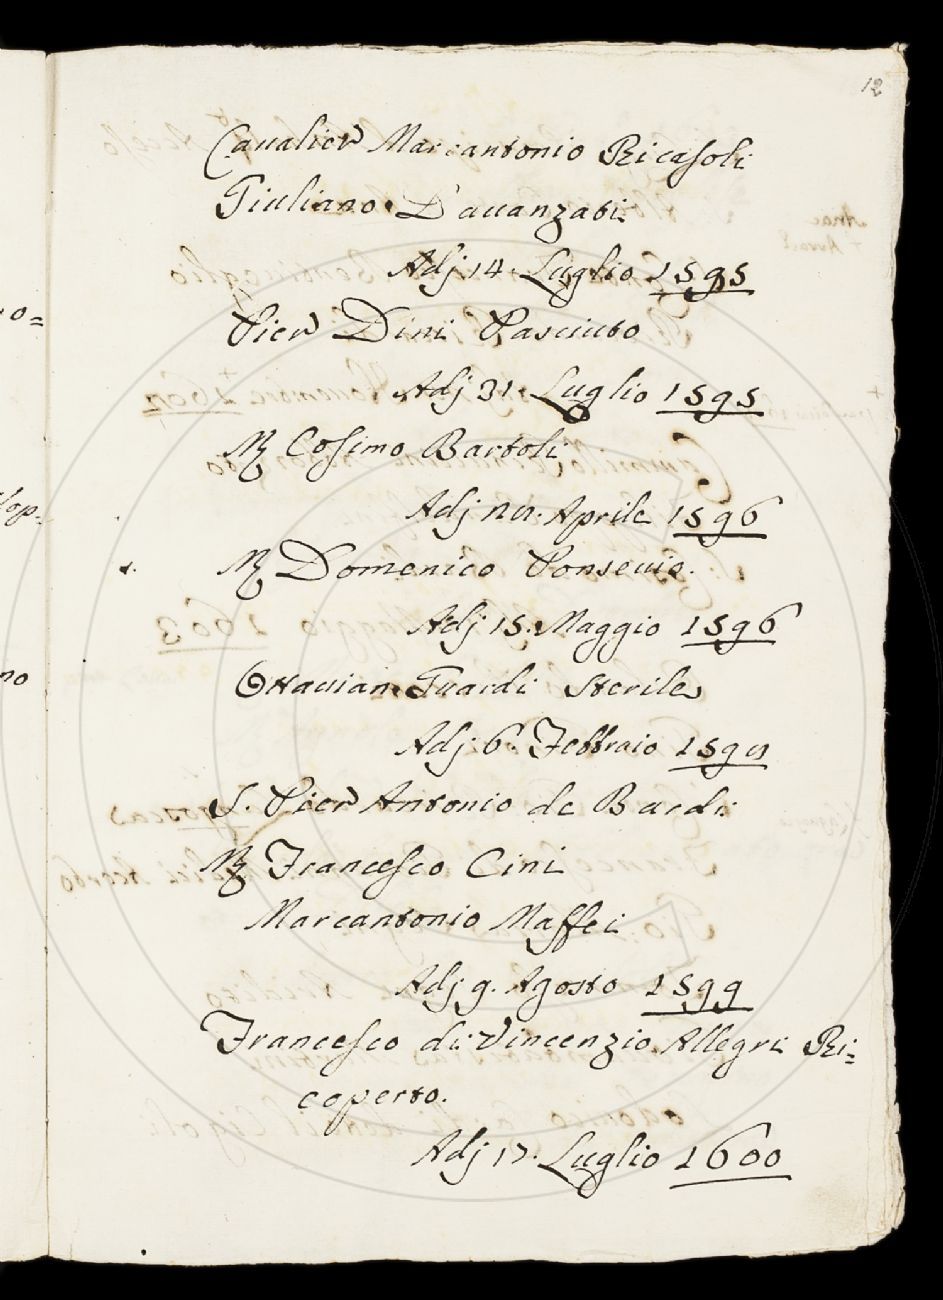 12
Caualier Marcantonio Ricasoli
Giuliano Dauanzati
Adj 14. Luglio 1595
Pier Dini Pasciuto
Adj 31. Luglio 1595
Mſ Coſimo Bartoli
Aprile 1596
Mſ Domenico
Adj 15. Maggio 1596
Ottauian Guardi Sterile
Adj 6. Febbraio
S. Pier Antonio de Bardi
Mſ Franceſco Cini
Marcantonio Maffei
Adj 9. Agosto 1599
Franceſco di Vincenzio Allegri Ri=
coperto.
Adj 17. Luglio 1600